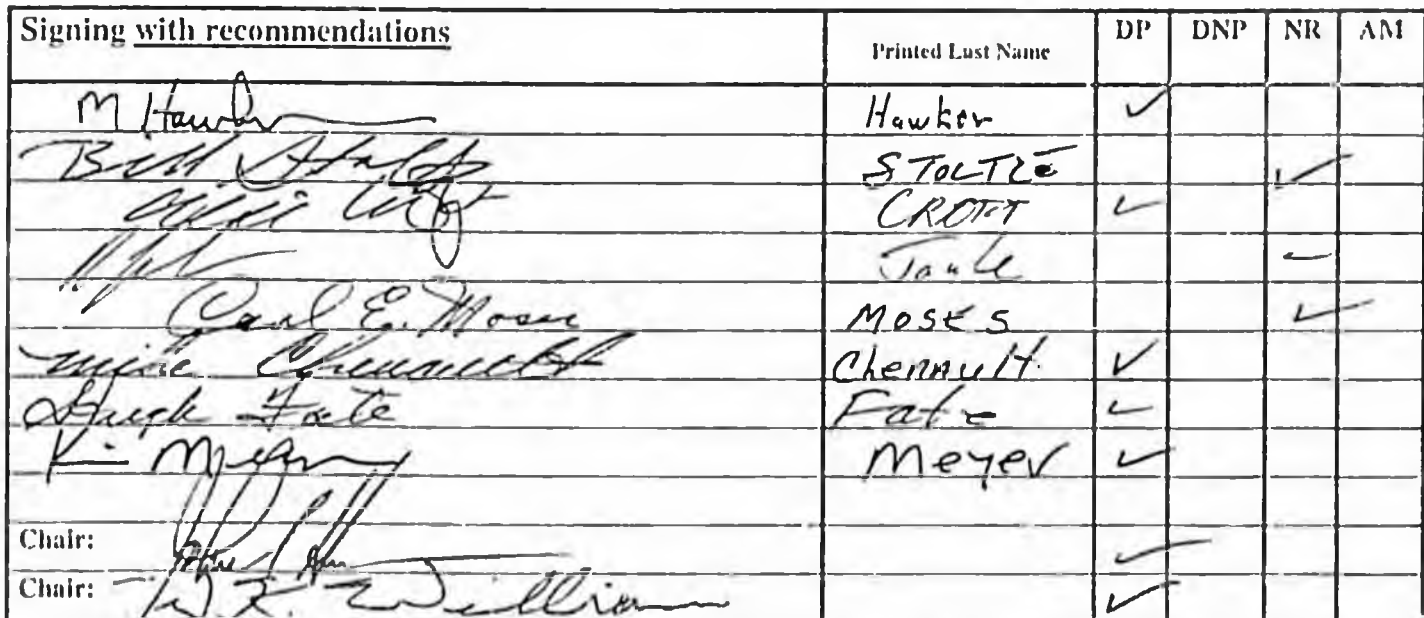 Signing with recommendations Printed Last Name DP DNP NR AM
M Hawker Hawker ✓
Bill Stoltze STOLTZE ✓
CROFT ✓
✓
Carl E. Moses MOSES ✓
Mike Chenault Chenault ✓
Hugh Fate Fate ✓
K Meyer Meyer ✓
Chair: ✓
Chair: W.K. Williams ✓